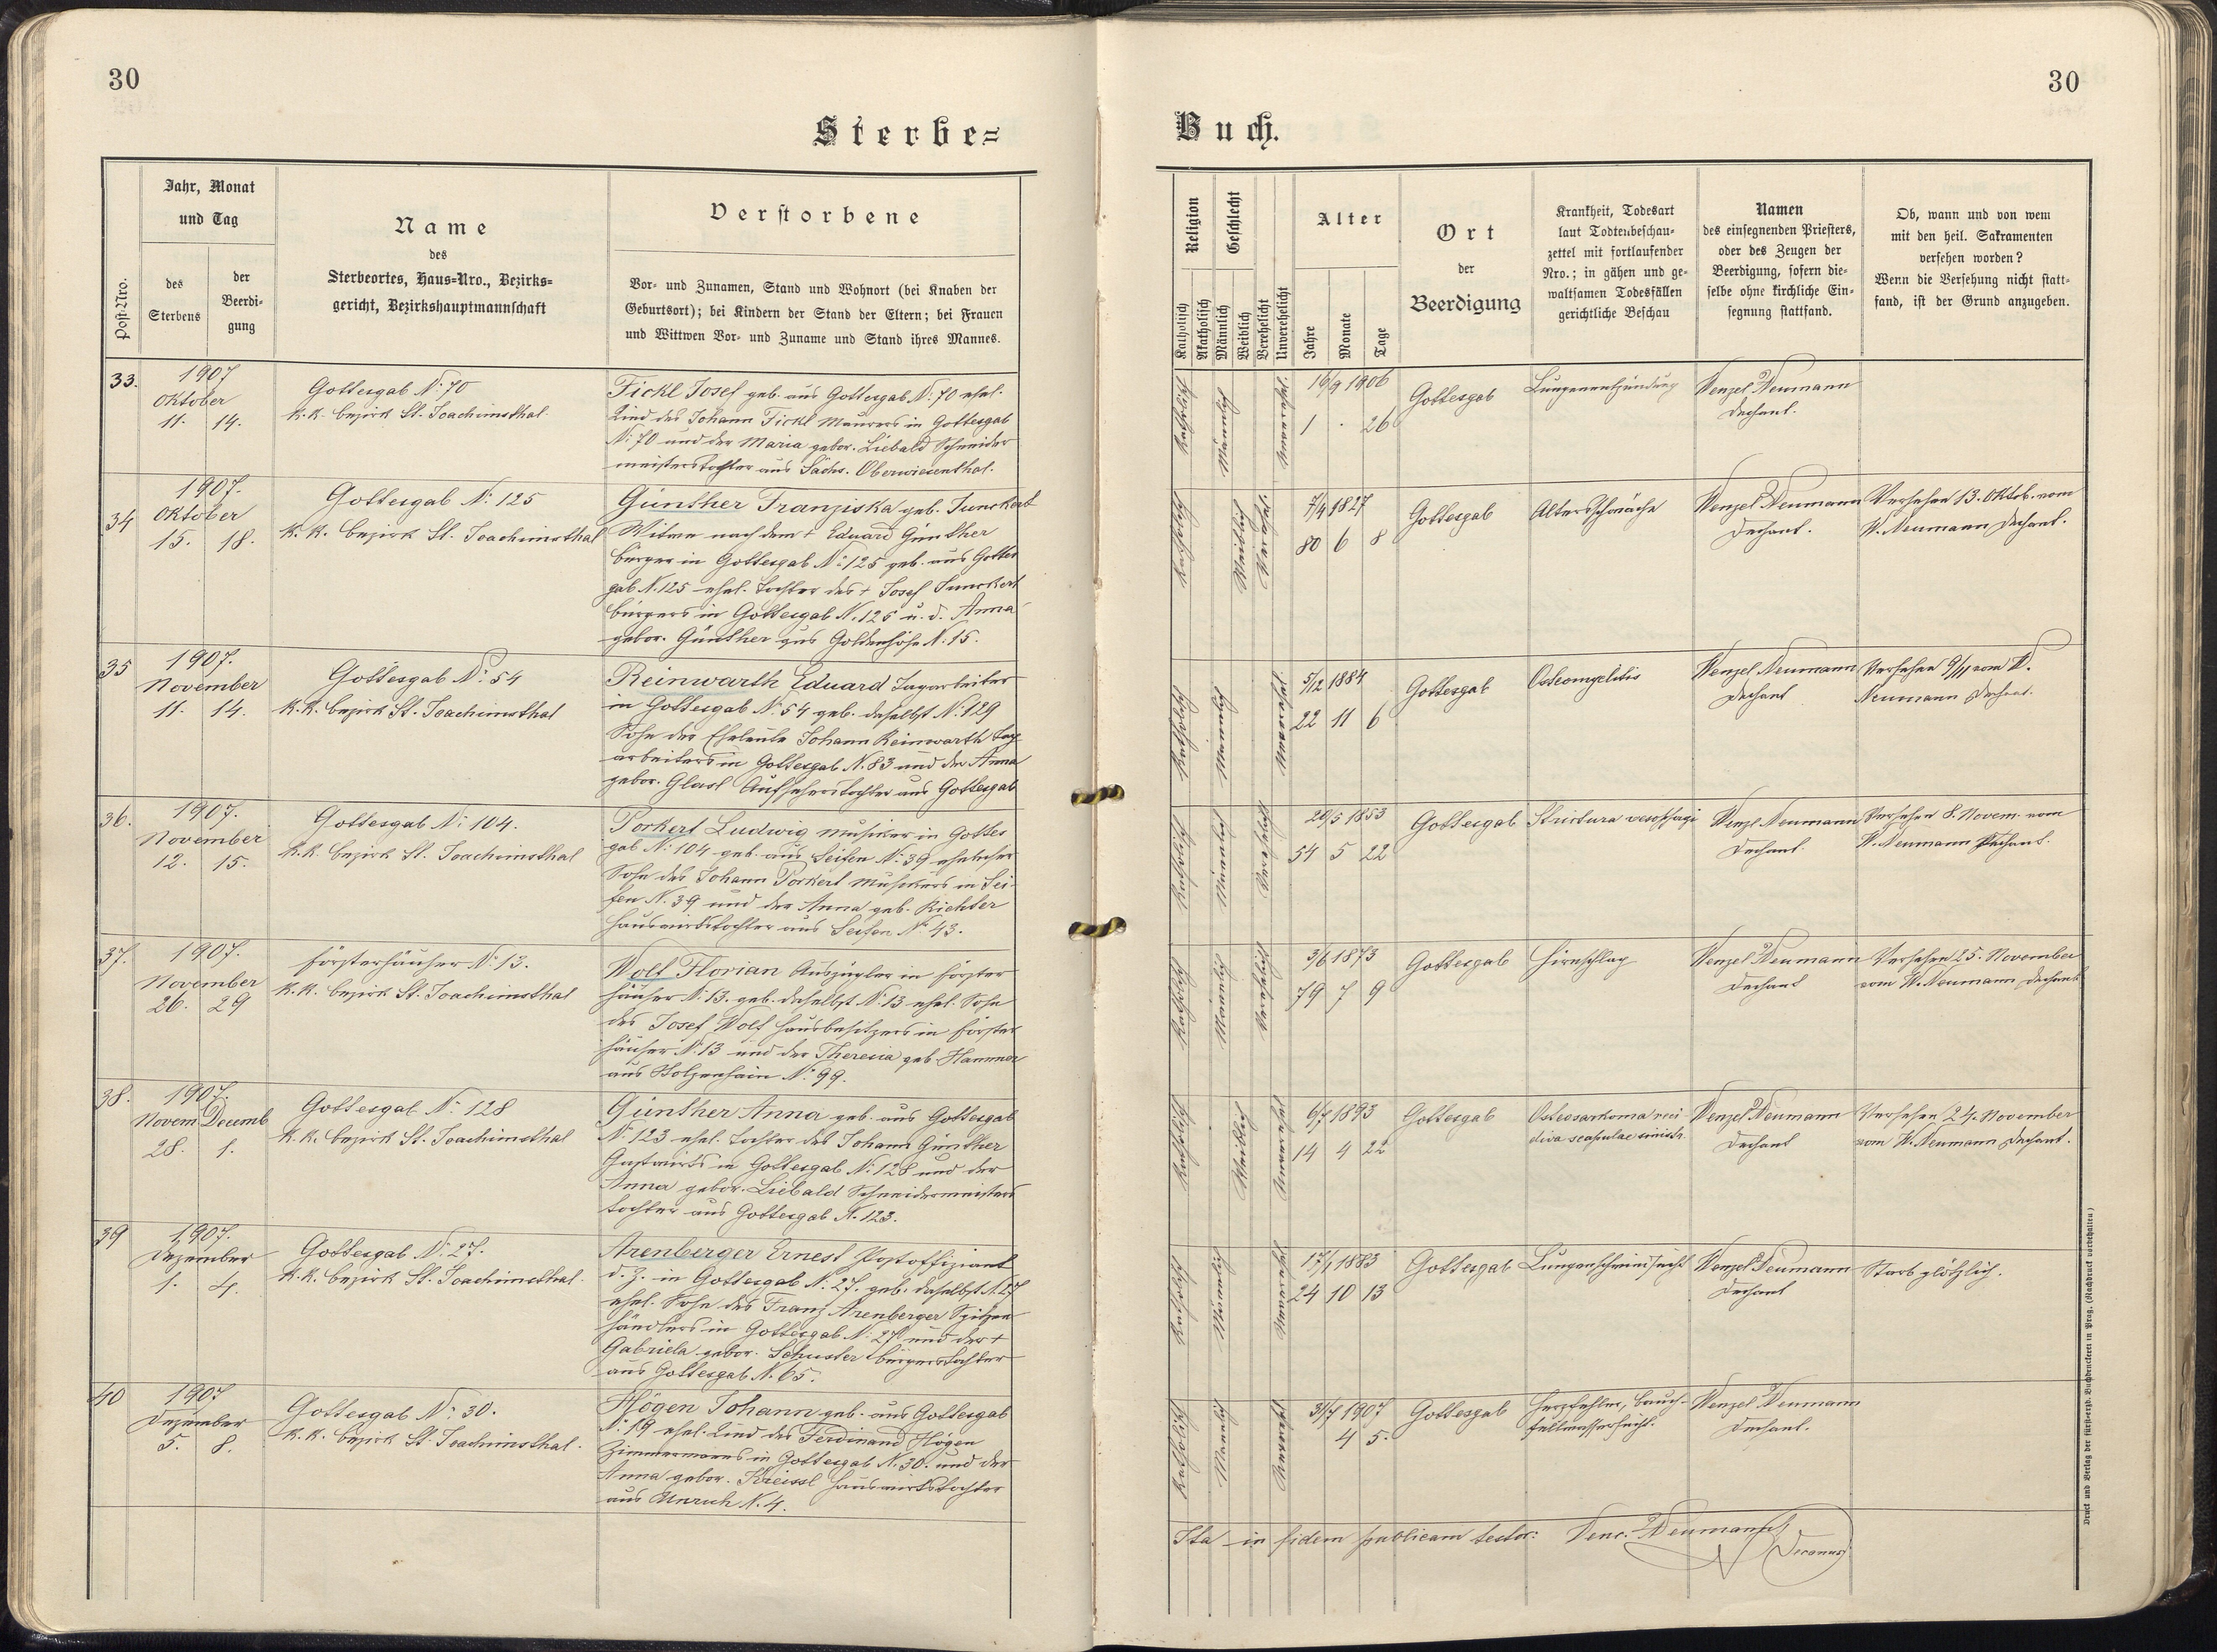 30
Sterbe=
Jahr, Monat
und Tag
des
Sterbens
der
Beerdi-
gung
Post-Nro.
Name
des
Sterbeortes, Haus-Nro., Bezirks-
gericht, Bezirkshauptmannschaft
Verstorbene
Vor- und Zunamen, Stand und Wohnort (bei Knaben der
Geburtsort); bei Kindern der Stand der Eltern; bei Frauen
und Wittwen Vor- und Zuname und Stand ihres Mannes.
33.
1907
Oktober
11. 14.
Gottesgab N: 70
K.K. Bezirk St. Joachimsthal.
Fickl Josef geb. aus Gottesgab N: 70 ehel.
Kind des Johann Fickl Maurers in Gottesgab
N: 70 und der Maria gebor. Liebald Schneider
meisterstochter aus Sächs. Oberwiesenthal.
34
1907.
Oktober
15. 18.
Gottesgab N: 125
K.K. Bezirk St. Joachimsthal
Günther Franziska geb. Junckert
Witwe nach dem + Eduard Günther
Bürger in Gottesgab N: 125 geb. aus Gottes
gab N. 125 ehel. Tochter des + Josef Junckert
Bürgers in Gottesgab N. 125 u. d. Anna
gebor. Günther aus Goldenhöhe N: 15.
35
1907.
November
11. 14.
Gottesgab N: 54
K.K. Bezirk St. Joachimsthal
Reinwarth Eduard Tagarbeiter
in Gottesgab N: 54 geb. daselbst N: 129
Sohn der Eheleute Johann Reinwarth Tag
arbeiters in Gottesgab N. 83 und der Anna
gebor. Glasl Aufseherstochter aus Gottesgab
36.
1907.
November
12. 15.
Gottesgab N: 104.
K.K. Bezirk St. Joachimsthal
Porkert Ludwig Musiker in Gottes
gab N: 104 geb. aus Seifen N: 39 ehelicher
Sohn des Johann Porkert Musikers in Sei-
fen N. 39 und der Anna geb. Richter
Hauswirtstochter aus Seifen N: 43.
37.
1907.
November
26. 29
Försterhäuser N: 13.
K.K. Bezirk St. Joachimsthal
Wolf Florian Auszügler in Förster
häuser N: 13. geb. daselbst N: 13 ehel. Sohn
des Josef Wolf Hausbesitzers in Förster
häuser N: 13 und der Theresia geb. Hammer
aus Holzenhain N: 99.
38.
1907.
Novem Decemb
28. 1.
Gottesgab N: 128
K.K. Bezirk St. Joachimsthal
Günther Anna geb. aus Gottesgab
N: 123 ehel. Tochter des Johann Günther
Gastwirts in Gottesgab N: 128 und der
Anna gebor. Liebald Schneidermeisters
tochter aus Gottesgab N. 123.
39
1907.
Dezember
1. 4.
Gottesgab N: 27.
K.K. Bezirk St. Joachimsthal.
Arenberger Ernest Postoffiziant
d. Z. in Gottesgab N. 27. geb. daselbst N. 27
ehel. Sohn des Franz Arenberger Spitzen
händlers in Gottesgab N: 27 und der +
Gabriela gebor. Schuster Bürgerstochter
aus Gottesgab N. 65.
40
1907
Dezember
5. 8.
Gottesgab N: 30.
K.K. Bezirk St. Joachimsthal.
Högen Johann geb. aus Gottesgab
N: 19 ehel. Kind des Ferdinand Högen
Zimmermanns in Gottesgab N. 30. und der
Anna gebor. Kreissl Hauswirtstochter
aus N. 4.
30
Buch.
Religion
Katholisch
Akatholisch
Geschlecht
Männlich
Weiblich
Verehelicht
Unverehelicht
Alter
Jahre
Monate
Tage
Ort
der
Beerdigung
Krankheit, Todesart
laut Todtenbeschau-
zettel mit fortlaufender
Nro.; in gähen und ge-
waltsamen Todesfällen
gerichtliche Beschau
Namen
des einsegnenden Priesters,
oder des Zeugen der
Beerdigung, sofern die-
selbe ohne kirchliche Ein-
segnung stattfand.
Ob, wann und von wem
mit den heil. Sakramenten
versehen worden?
Wenn die Versehung nicht statt-
fand, ist der Grund anzugeben.
Katholisch
Männlich
Unverehel.
16/9 1906
1 . 26
Gottesgab
Lungenentzündung
Wenzel Neumann
Dechant.
Katholisch
Weiblich
Verehel.
7/4 1827
80 6 8
Gottesgab
Altersschwäche
Wenzel Neumann
Dechant.
Versehen 13. Oktob. vom
W. Neumann Dechant.
Katholisch
Männlich
Unverehel
5/12 1884
22 11 6
Gottesgab
Osteomyelitis
Wenzel Neumann
Dechant
Versehen 9/11 vom W.
Neumann Dechant.
Katholisch
Männlich
Verehelicht
20/5 1853
54 5 22
Gottesgab
Strictura oesophagi
Wenzl Neumann
Dechant.
Versehen 8. Novem. vom
W. Neumann Dechant.
Katholisch
Männlich
Verehelicht
3/6 1873
79 7 9
Gottesgab
Hirnschlag
Wenzel Neumann
Dechant
Versehen 25. November
vom W. Neumann Dechant
Katholisch
Weiblich
Unverehel
6/7 1893
14 4 22
Gottesgab
Osteosarkoma reci
diva scapulae sinistr.
Wenzel Neumann
Dechant
Versehen 24. November
vom W. Neumann Dechant.
Katholisch
Männlich
Unverehel
17/1 1883
24 10 13
Gottesgab
Lungenschwindsucht
Wenzel Neumann
Dechant
Starb plötzlich.
Katholisch
Männlich
Unverehel
31/7 1907
4 5.
Gottesgab
Herzfehler, Bauch-
fellwassersucht.
Wenzel Neumann
Dechant.
Ita in fidem publicam testor: Venc. Neumann
Decanus
Druck und Verlag der fürsterzb. Buchdruckerei in Prag. (Nachdruck vorbehalten)